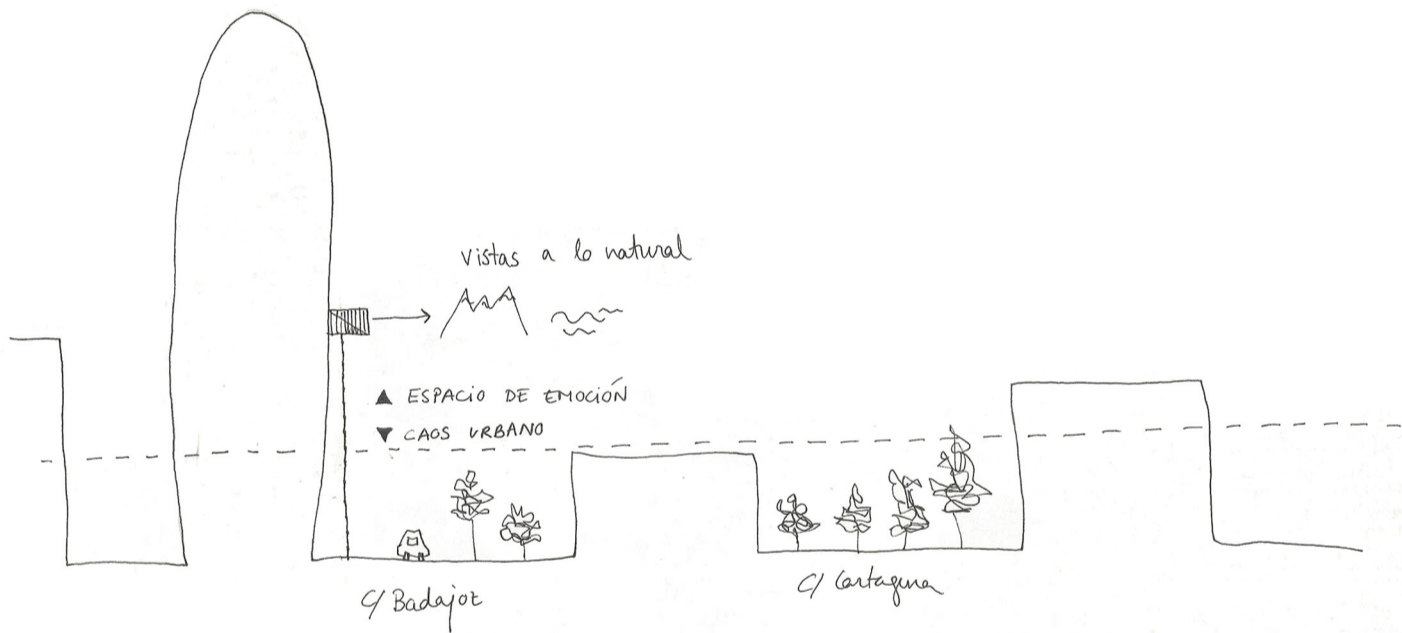 vistas a lo natural
▲ ESPACIO DE EMOCIÓN
▼ CAOS URBANO
C/ Badajoz
C/ Cartagena